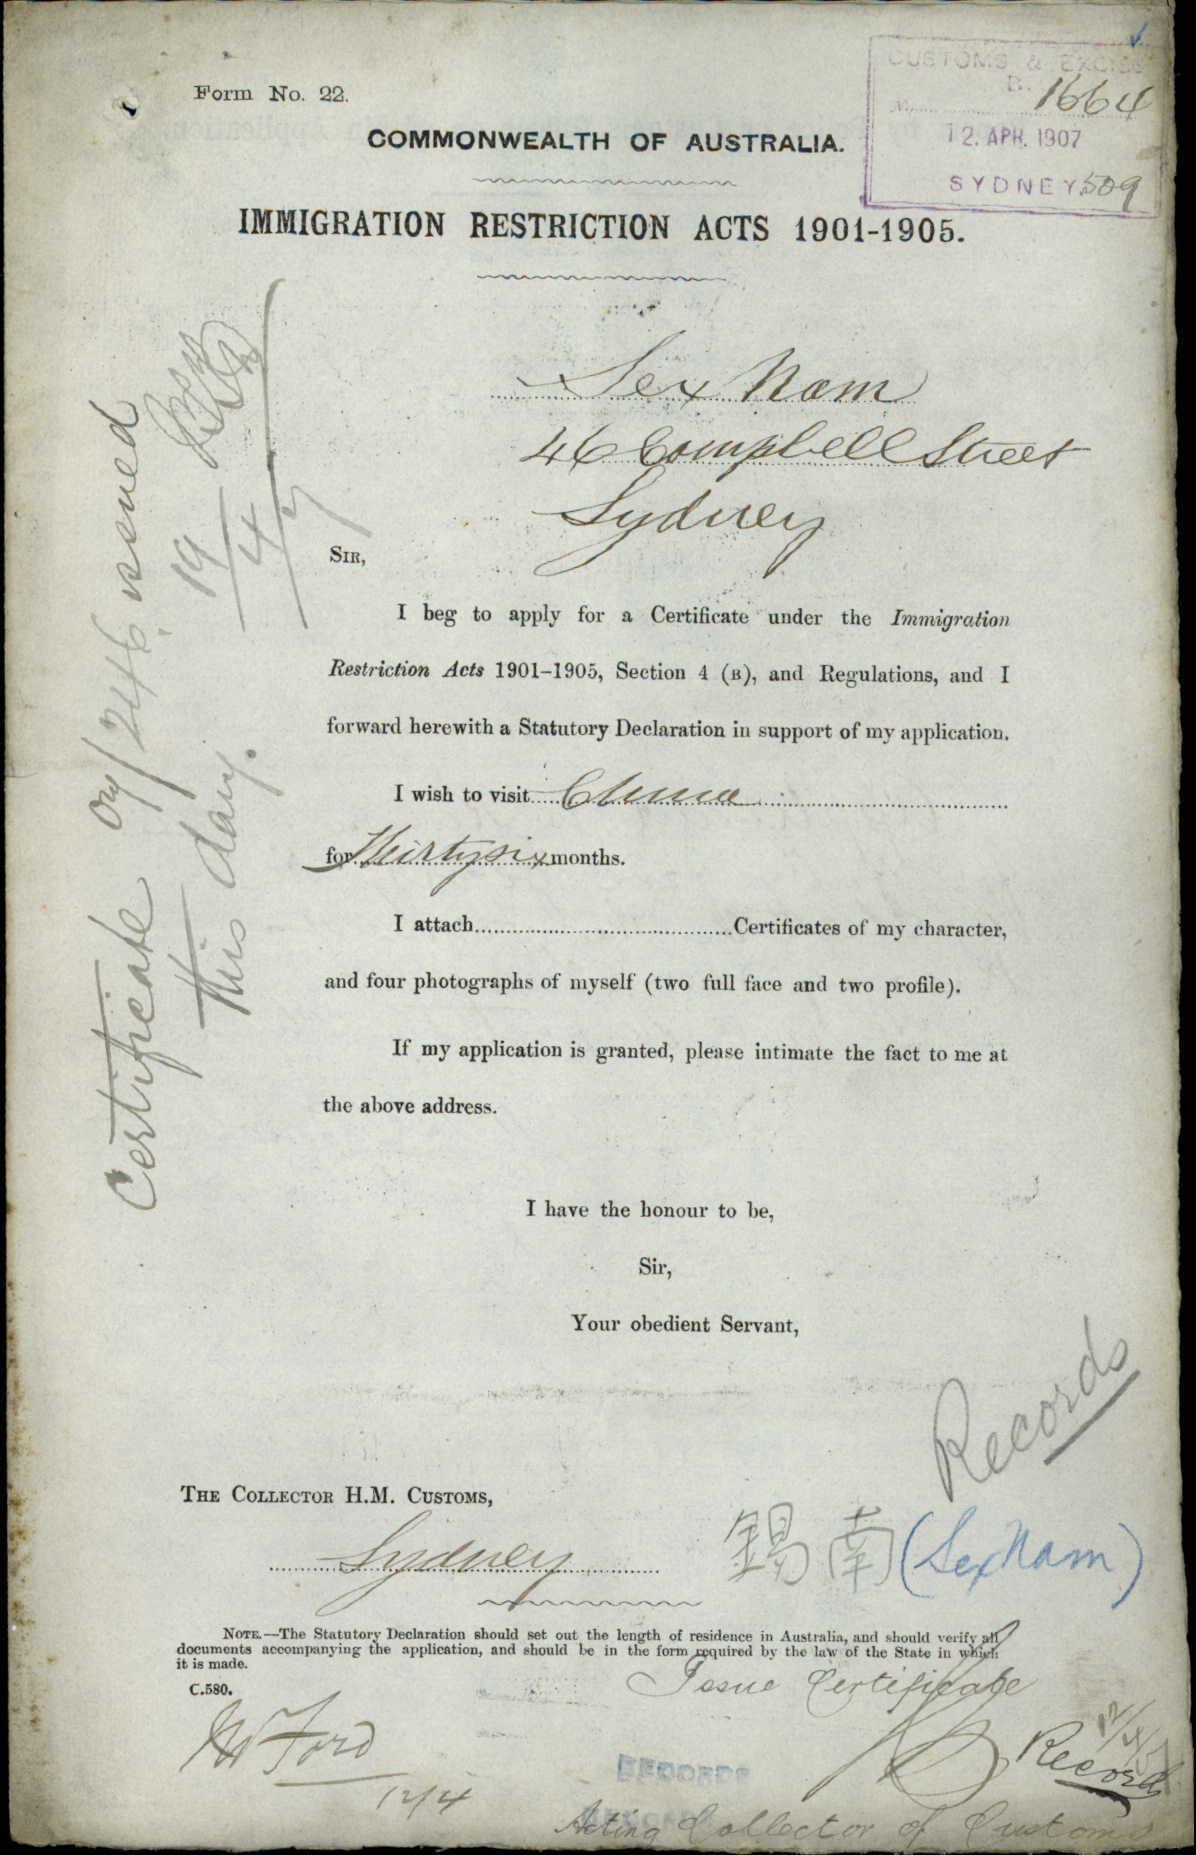 CUSTOMS & EXCISE
B.
No. 1664
12. APR. 1907
SYDNEY 509
Form No. 22.
COMMONWEALTH OF AUSTRALIA.
IMMIGRATION RESTRICTION ACTS 1901-1905.
Sex Nam
46 Campbell Street
Sydney
SIR,
I beg to apply for a Certificate under the Immigration
Restriction Acts 1901-1905, Section 4 (B), and Regulations, and I
forward herewith a Statutory Declaration in support of my application.
I wish to visit China
for Thirty six months.
I attach Certificates of my character,
and four photographs of myself (two full face and two profile).
If my application is granted, please intimate the fact to me at
the above address.
I have the honour to be,
Sir,
Your obedient Servant,
Certificate 07/246 issued
this day.
19/4/7
Records
THE COLLECTOR H.M. CUSTOMS,
Sydney
錫南 (Sex Nam)
NOTE.—The Statutory Declaration should set out the length of residence in Australia, and should verify all
documents accompanying the application, and should be in the form required by the law of the State in which
it is made.
C.580.
Issue Certificate
Ford
12/4
12/4/7
Records
RECORDS
Acting Collector of Customs